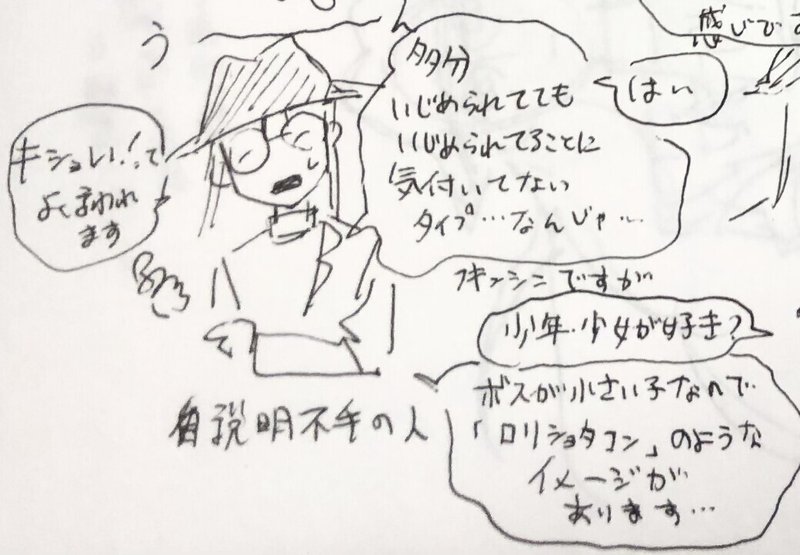 感じです
う
はい
多分
いじめられてても
いじめられてることに
気付いてない
タイプ…なんじゃ…
キショい!って
よく言われ
ます
フキンシンですが
少年・少女が好き?
ボスが小さい子なので
「ロリショタコン」のような
イメージが
あります…
自説明不手の人